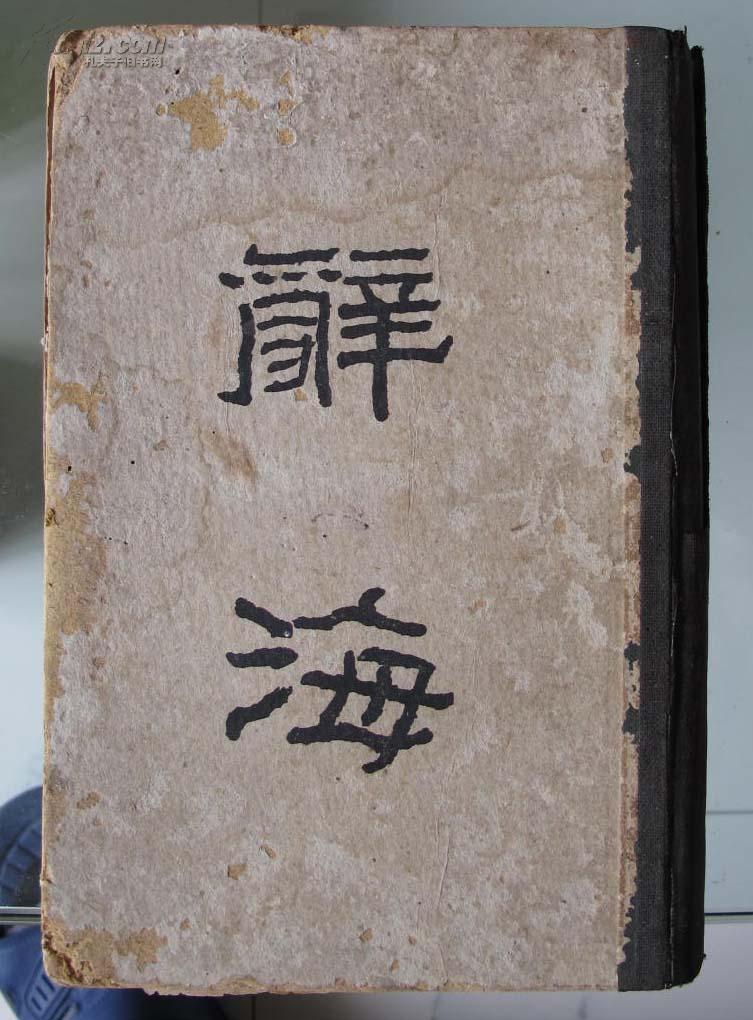 孔夫子旧书网
辭
海